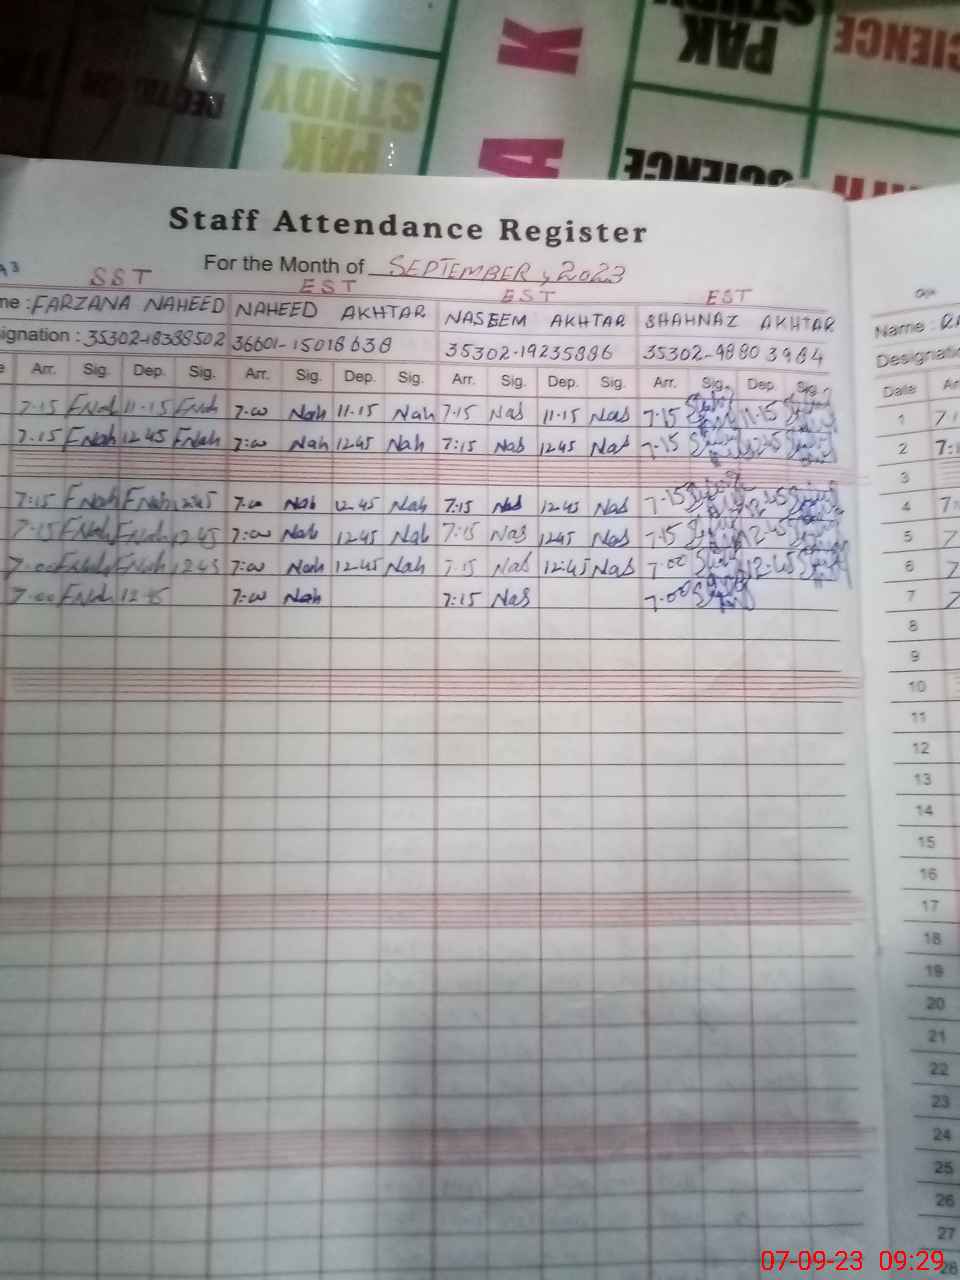 SCIENCE
PAK STUDY
PAK STUDY
K
A
SCIENCE
Staff Attendance Register
For the Month of SEPTEMBER, 2023
SST EST EST EST
me : FARZANA NAHEED NAHEED AKHTAR NASEEM AKHTAR SHAHNAZ AKHTAR
signation : 35302-18388502 36601-15018638 35302-19235886 35302-98803984
Arr. Sig. Dep. Sig. Arr. Sig. Dep. Sig. Arr. Sig. Dep. Sig. Arr. Sig. Dep. Sig.
7-15 FNah 11-15 FNah 7:00 Nah 11-15 Nah 7:15 Nas 11-15 Nas 7-15 11-15
7-15 FNah 1245 FNah 7:00 Nah 1245 Nah 7:15 Nas 1245 Nas 7-15
7:15 FNah FNah 1245 7:00 Nah 12.45 Nah 7:15 Nas 12.45 Nas 7-15 12.45
7-15 FNah FNah 12.45 7:00 Nah 1245 Nah 7:15 Nas 1245 Nas 7.15 12-45
7.00 FNah FNah 1245 7:00 Nah 12.45 Nah 7.15 Nas 12:45 Nas 7.00 12.45
7.00 FNah 1245 7:00 Nah 7:15 Nas 7.00
Name :
Designatio
Date Ar
1
2
3
4
5
6
7
8
9
10
11
12
13
14
15
16
17
18
19
20
21
22
23
24
25
26
27
28
07-09-23 09:29